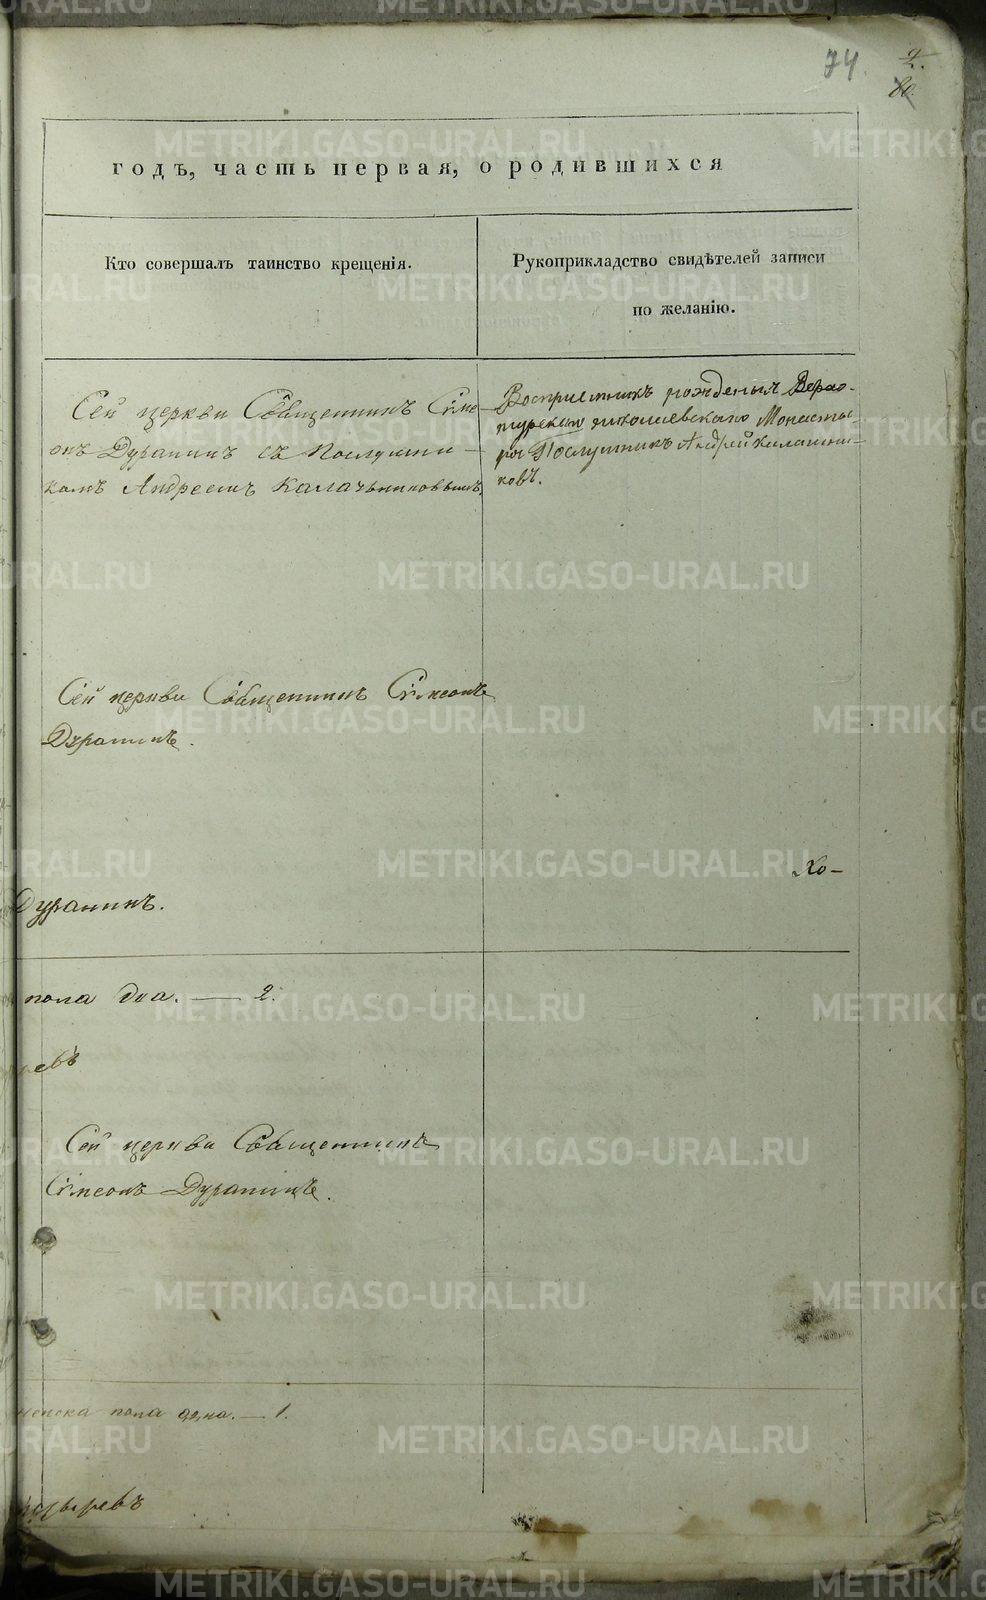 74.
80.
годъ, часть первая, о родившихся
Кто совершалъ таинство крещенія.
Рукоприкладство свидѣтелей записи
по желанію.
Сей церкви Священникъ Симе-
онъ Дуранинъ съ Послушни-
комъ Андреемъ Калачьниковымъ,
Восприемникъ Верхо-
турскаго николаевскаго Монасты-
ря Послушникъ Андрей Калашни-
ковъ.
Сей церкви Священникъ Симеонъ
Дуранинъ.
Хо-
Дуранинъ.
пола два. — 2.
Сей церкви Священникъ
Симеонъ Дуранинъ.
женска пола одна. — 1.
METRIKI.GASO-URAL.RU